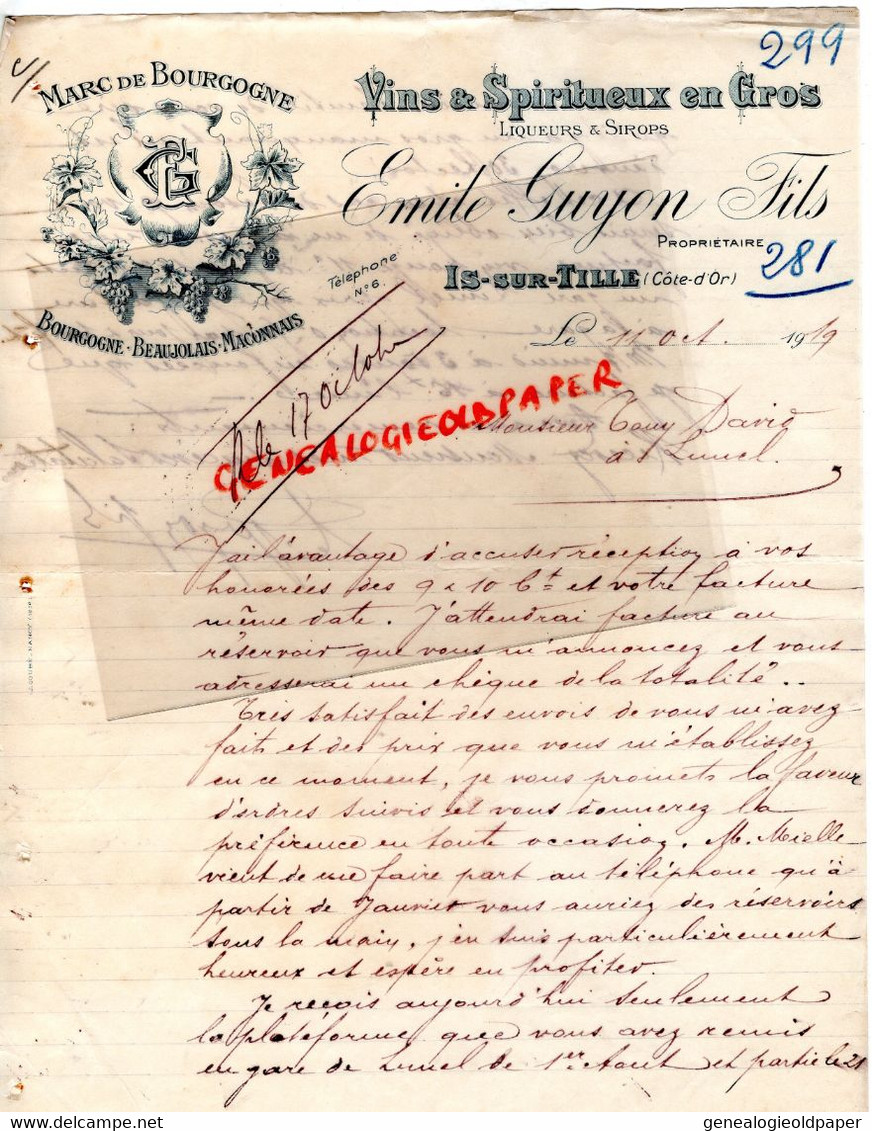 299
MARC DE BOURGOGNE
Vins & Spiritueux en Gros
LIQUEURS & SIROPS
EG
Emile Guyon Fils
PROPRIÉTAIRE
Téléphone
N° 6.
IS-SUR-TILLE (Côte-d'Or)
281
BOURGOGNE · BEAUJOLAIS · MACONNAIS
Le 11 oct. 1919
17 Octobre
GENEALOGIEOLDPAPER
Monsieur Tony David
à Lunel.
J'ai l'avantage d'accuser réception à vos
honorées des 9 & 10 Ct et votre facture
même date. J'attendrai facture au
réservoir que vous m'annoncez et vous
adresserai un chèque de la totalité..
Très satisfait des envois de vous m'avez
faits et des prix que vous m'établissez
en ce moment, je vous promets la faveur
d'ordres suivis et vous donnerez la
préférence en toute occasion. M. Mielle
vient de me faire part au téléphone qu'à
partir de Janvier vous auriez des réservoirs
sous la main, j'en suis particulièrement
heureux et espère en profiter.
Je reçois aujourd'hui seulement
la plateforme que vous avez remis
en gare de Lunel de 1er Aout et partie le 21
genealogieoldpaper